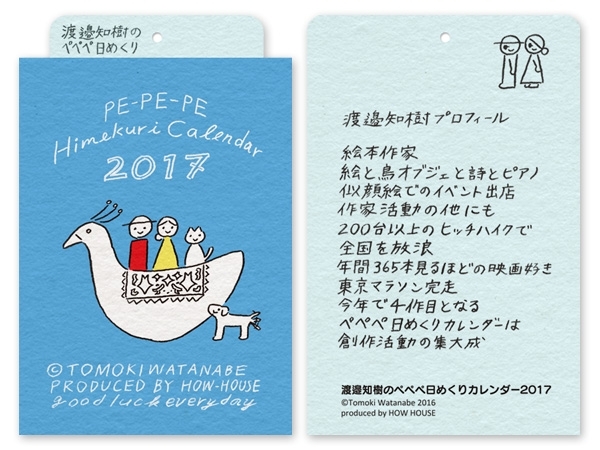 渡邉知樹の
ペペペ日めくり
PE-PE-PE
Himekuri Calendar
2017
©TOMOKI WATANABE
PRODUCED BY HOW-HOUSE
good luck everyday
渡邉知樹プロフィール
絵本作家
絵と鳥オブジェと詩とピアノ
似顔絵でのイベント出店
作家活動の他にも
200台以上のヒッチハイクで
全国を放浪
年間365本見るほどの映画好き
東京マラソン完走
今年で4作目となる
ペペペ日めくりカレンダーは
創作活動の集大成
渡邉知樹のペペペ日めくりカレンダー2017
©Tomoki Watanabe 2016
produced by HOW HOUSE